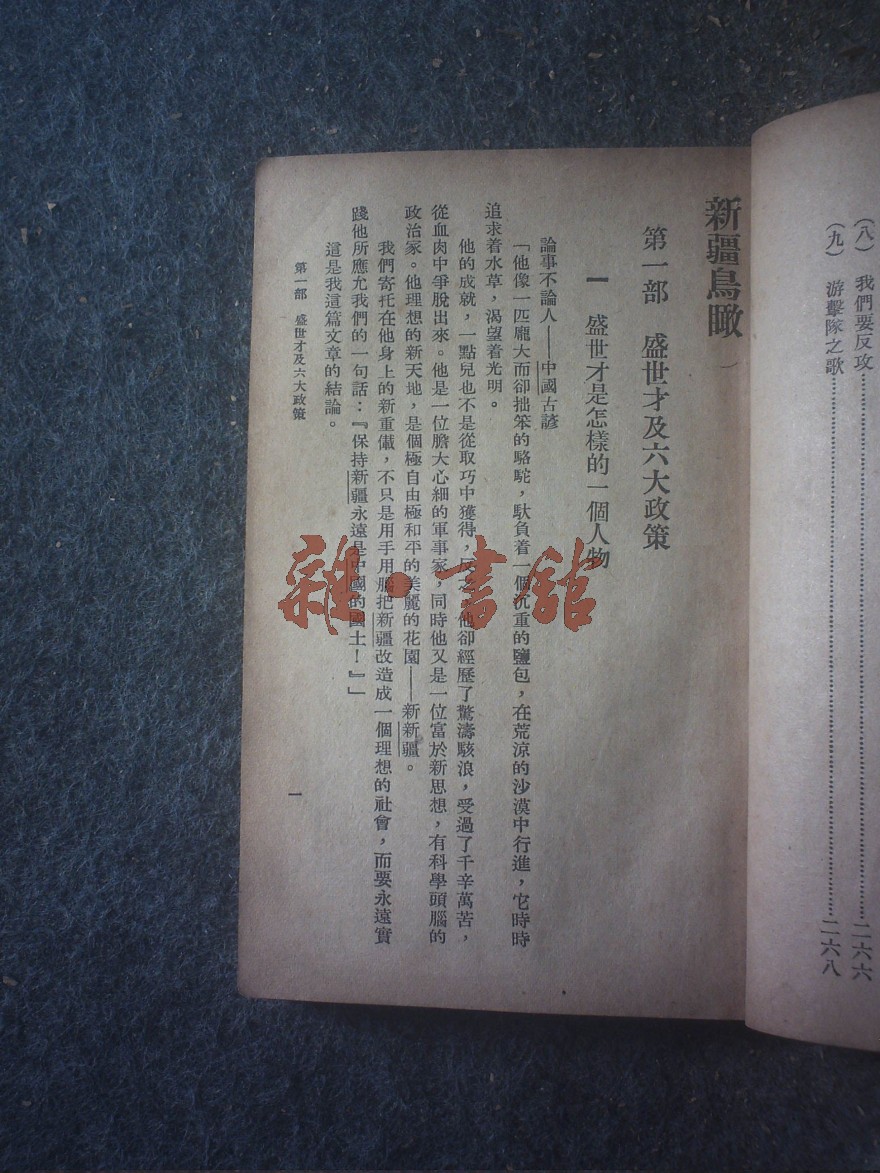 (八) 我們要反攻……………………二六六
(九) 游擊隊之歌……………………二六八
新疆鳥瞰
第一部 盛世才及六大政策
一 盛世才是怎樣的一個人物
論事不論人——中國古諺
「他像一匹龐大而卻拙笨的駱駝，馱負着一個沉重的鹽包，在荒涼的沙漠中行進，它時時
追求着水草，渴望着光明。
他的成就，一點兒也不是從取巧中獲得，反之，他卻經歷了驚濤駭浪，受過了千辛萬苦，
從血肉中爭脫出來。他是一位膽大心細的軍事家，同時他又是一位富於新思想，有科學頭腦的
政治家。他理想的新天地，是個極自由極和平的美麗的花園——新新疆。
我們寄托在他身上的新重儎，不只是用手用腦把新疆改造成一個理想的社會，而要永遠實
踐他所應允我們的一句話：『保持新疆永遠是中國的國土！』」
這是我這篇文章的結論。
第一部 盛世才及六大政策
一
雜·書館